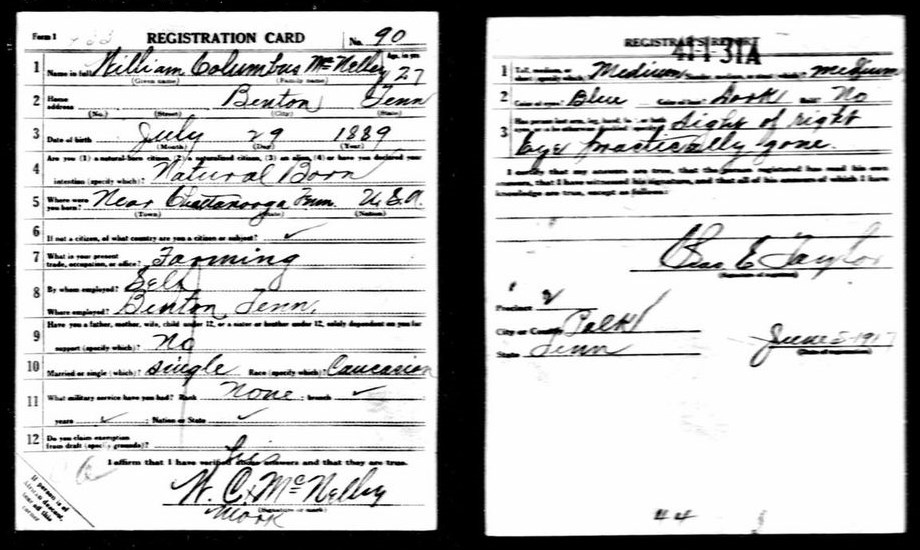 Form 1
REGISTRATION CARD
No. 90
Age, in yrs.
1 Name in full William Columbus McNelley 27
(Given name) (Family name)
2 Home address Benton Tenn
(No.) (Street) (City) (State)
3 Date of birth July 29 1889
(Month) (Day) (Year)
Are you (1) a natural-born citizen, (2) a naturalized citizen, (3) an alien, (4) or have you declared your
4 intention (specify which)? Natural Born
5 Where were you born? Near Chattanooga Tenn. U.S.A.
(Town) (State) (Nation)
6 If not a citizen, of what country are you a citizen or subject? ✓
7 What is your present trade, occupation, or office? Farming
8 By whom employed? Self
Where employed? Benton Tenn.
Have you a father, mother, wife, child under 12, or a sister or brother under 12, solely dependent on you for
9 support (specify which)? No
10 Married or single (which)? Single Race (specify which)? Caucasion
11 What military service have you had? Rank None ; branch ✓
years ✓ ; Nation or State ✓
12 Do you claim exemption from draft (specify grounds)?
I affirm that I have verified above answers and that they are true.
his
W. C. x McNelley
(Signature or mark)
mark
If person is of African descent, tear off this corner
REGISTRAR'S REPORT
41-1-31A
1 Tall, medium, or short (specify which)? Medium Slender, medium, or stout (which)? medium
2 Color of eyes? Blue Color of hair? Dark Bald? No
3 Has person lost arm, leg, hand, foot, or both eyes, or is he otherwise disabled (specify)? Sight of right
eye practically gone.
I certify that my answers are true, that the person registered has read his own
answers, that I have witnessed his signature, and that all of his answers of which I have
knowledge are true, except as follows:
Chas E Taylor
(Signature of registrar)
Precinct 2
City or County Polk
State Tenn
June 5-1917
(Date of registration)
44